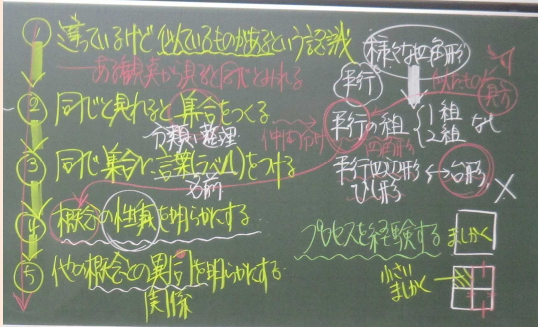 ① 違っているけど似ているものがあるという認識
ある観点から見ると同じとみれる
② 同じと見れると集合をつくる
分類・整理
③ 同じ集合に言葉(ラベル)をつける
名前
④ 概念の性質を明らかにする
⑤ 他の概念との異同を明らかにする
関係
様々な四角形
平行
似たもの
見方
仲間分け
平行の組
1組
2組
なし
四角形
平行四辺形
ひし形
↔台形
×
プロセスを経験する
ましかく
小さい
ましかく